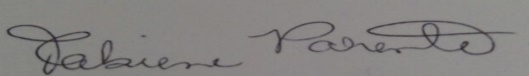 Fabiene Parente